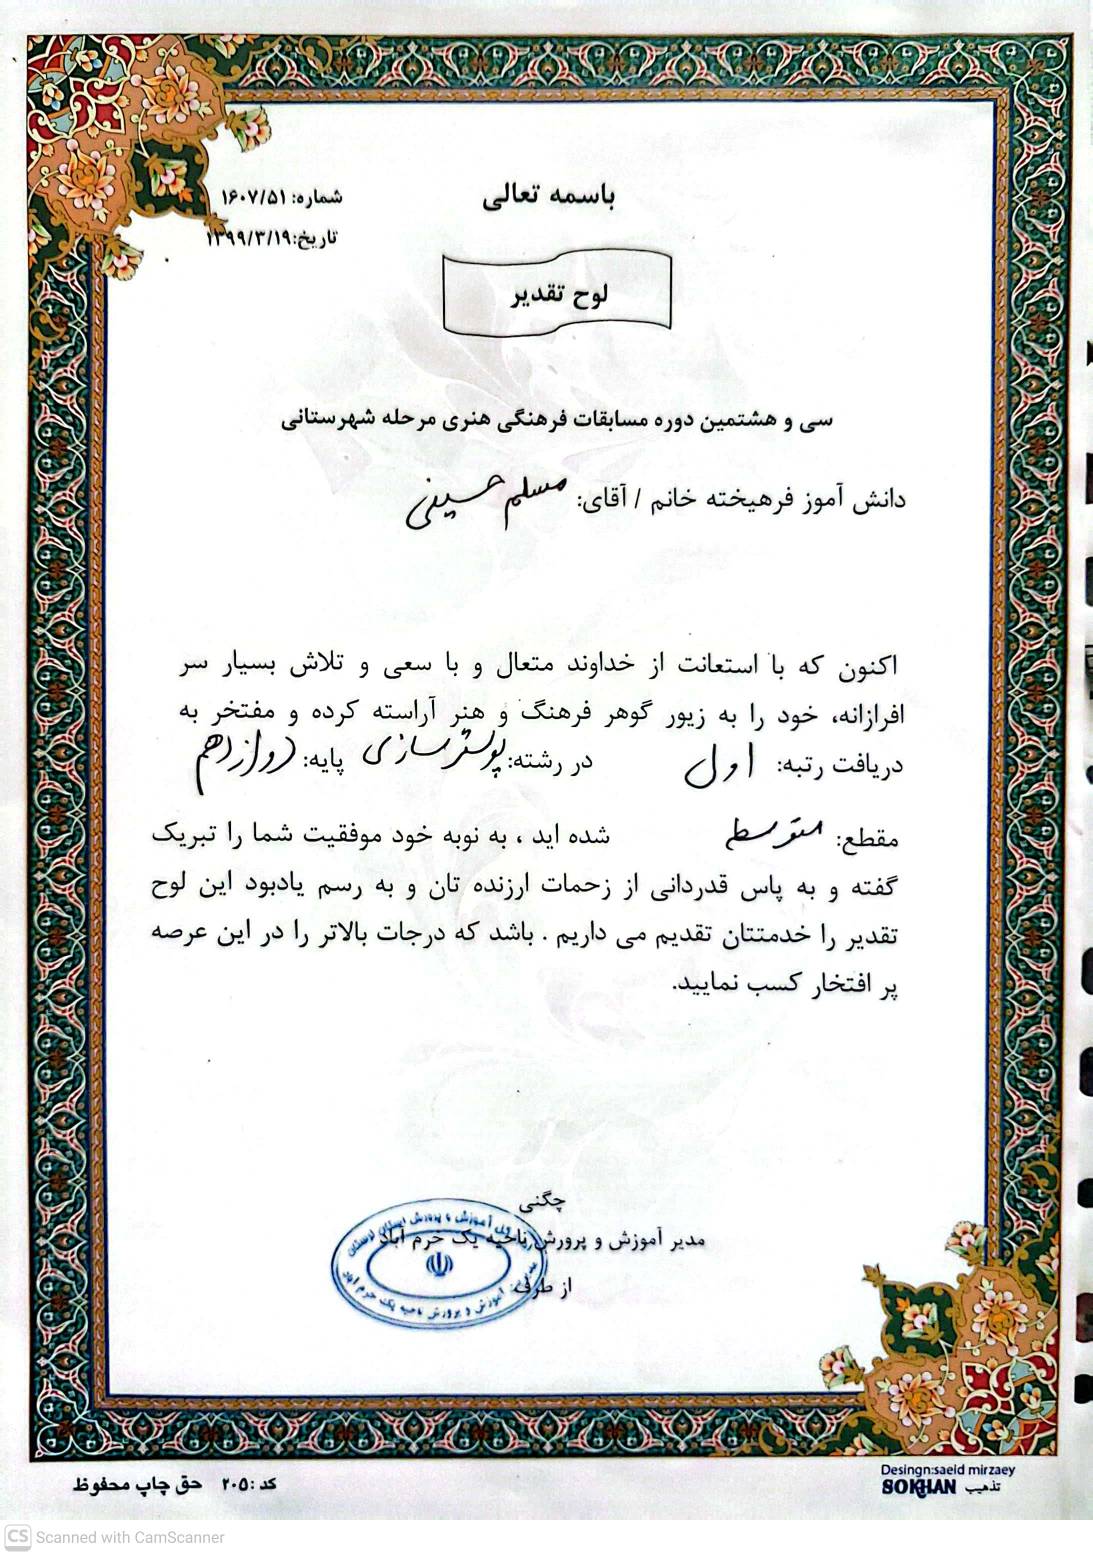 باسمه تعالی
شماره: ۱۶۰۷/۵۱
تاریخ:۱۳۹۹/۳/۱۹
لوح تقدیر
سی و هشتمین دوره مسابقات فرهنگی هنری مرحله شهرستانی
دانش آموز فرهیخته خانم / آقای: مسلم حسینی
اکنون که با استعانت از خداوند متعال و با سعی و تلاش بسیار سر
افرازانه، خود را به زیور گوهر فرهنگ و هنر آراسته کرده و مفتخر به
دریافت رتبه: اول در رشته: پوسترسازی پایه: دوازدهم
مقطع: متوسطه شده اید ، به نوبه خود موفقیت شما را تبریک
گفته و به پاس قدردانی از زحمات ارزنده تان و به رسم یادبود این لوح
تقدیر را خدمتتان تقدیم می داریم . باشد که درجات بالاتر را در این عرصه
پر افتخار کسب نمایید.
چگنی
مدیر آموزش و پرورش ناحیه یک خرم آباد
از طرف
آموزش و پرورش استان لرستان
آموزش و پرورش ناحیه یک خرم آباد
Desingn:saeid mirzaey
تذهیب SOKHAN
کد :۲۰۵ حق چاپ محفوظ
CS Scanned with CamScanner